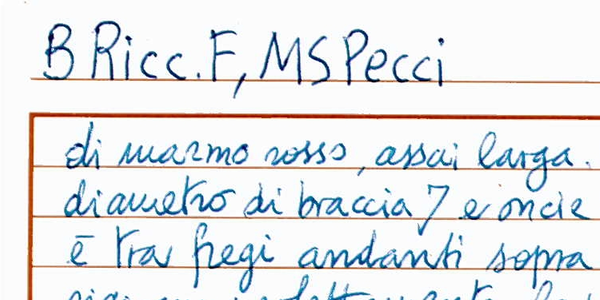 B Ricc. F, MS Pecci
di marmo rosso, assai larga.
diametro di braccia 7 e oncie
ē tra fregi andanti sopra